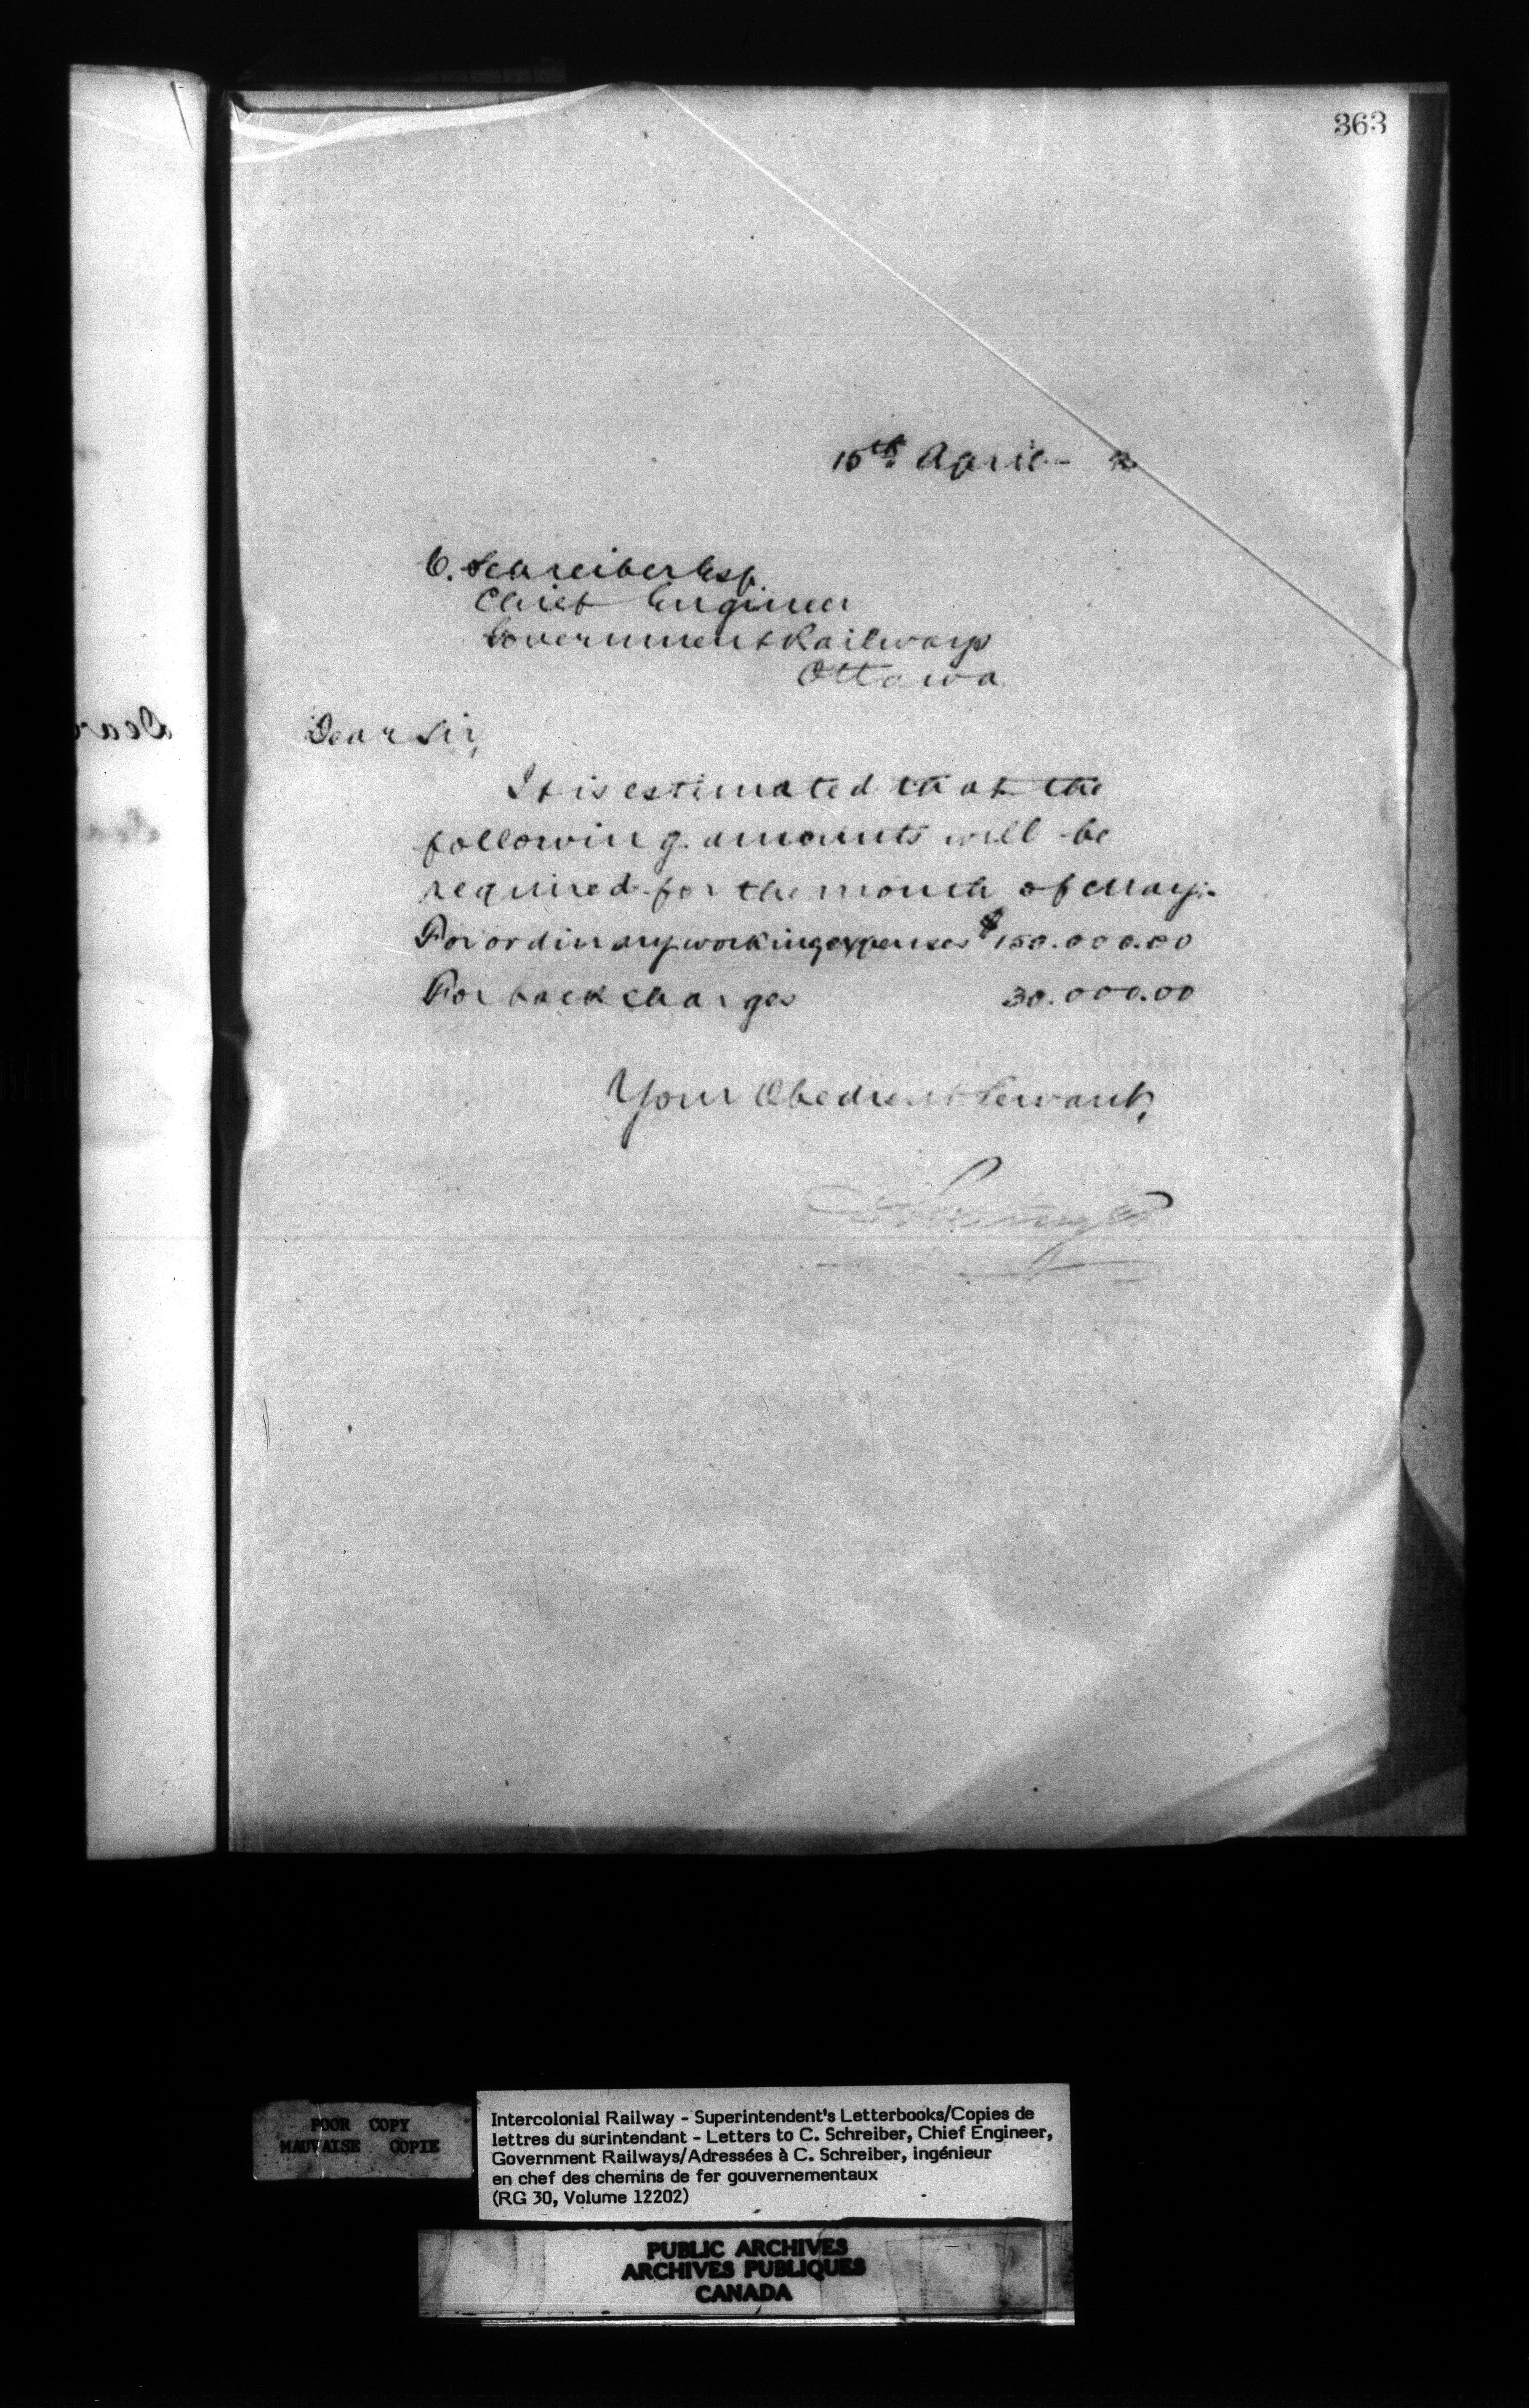 363
15th April - 2
C. Schreiber Esq.
Chief Engineer
Government Railways
Ottawa
Dear Sir,
It is estimated that the
following amounts will be
required for the month of May:-
For ordinary working expenses $150.000.00
For back charges 30.000.00
Your Obedient Servant,
Dear
POOR COPY
MAUVAISE COPIE
Intercolonial Railway - Superintendent's Letterbooks/Copies de
lettres du surintendant - Letters to C. Schreiber, Chief Engineer,
Government Railways/Adressées à C. Schreiber, ingénieur
en chef des chemins de fer gouvernementaux
(RG 30, Volume 12202)
PUBLIC ARCHIVES
ARCHIVES PUBLIQUES
CANADA